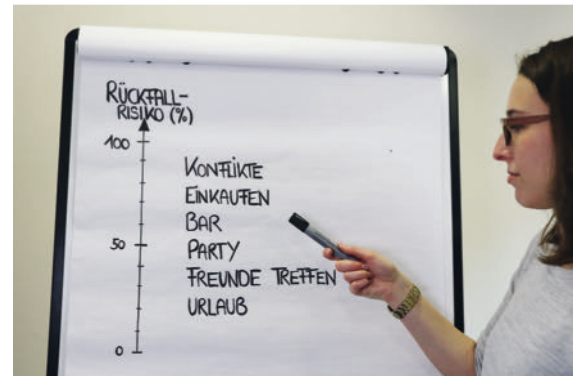 RÜCKFALL-
RISIKO (%)
100
KONFLIKTE
EINKAUFEN
BAR
50
PARTY
FREUNDE TREFFEN
URLAUB
0